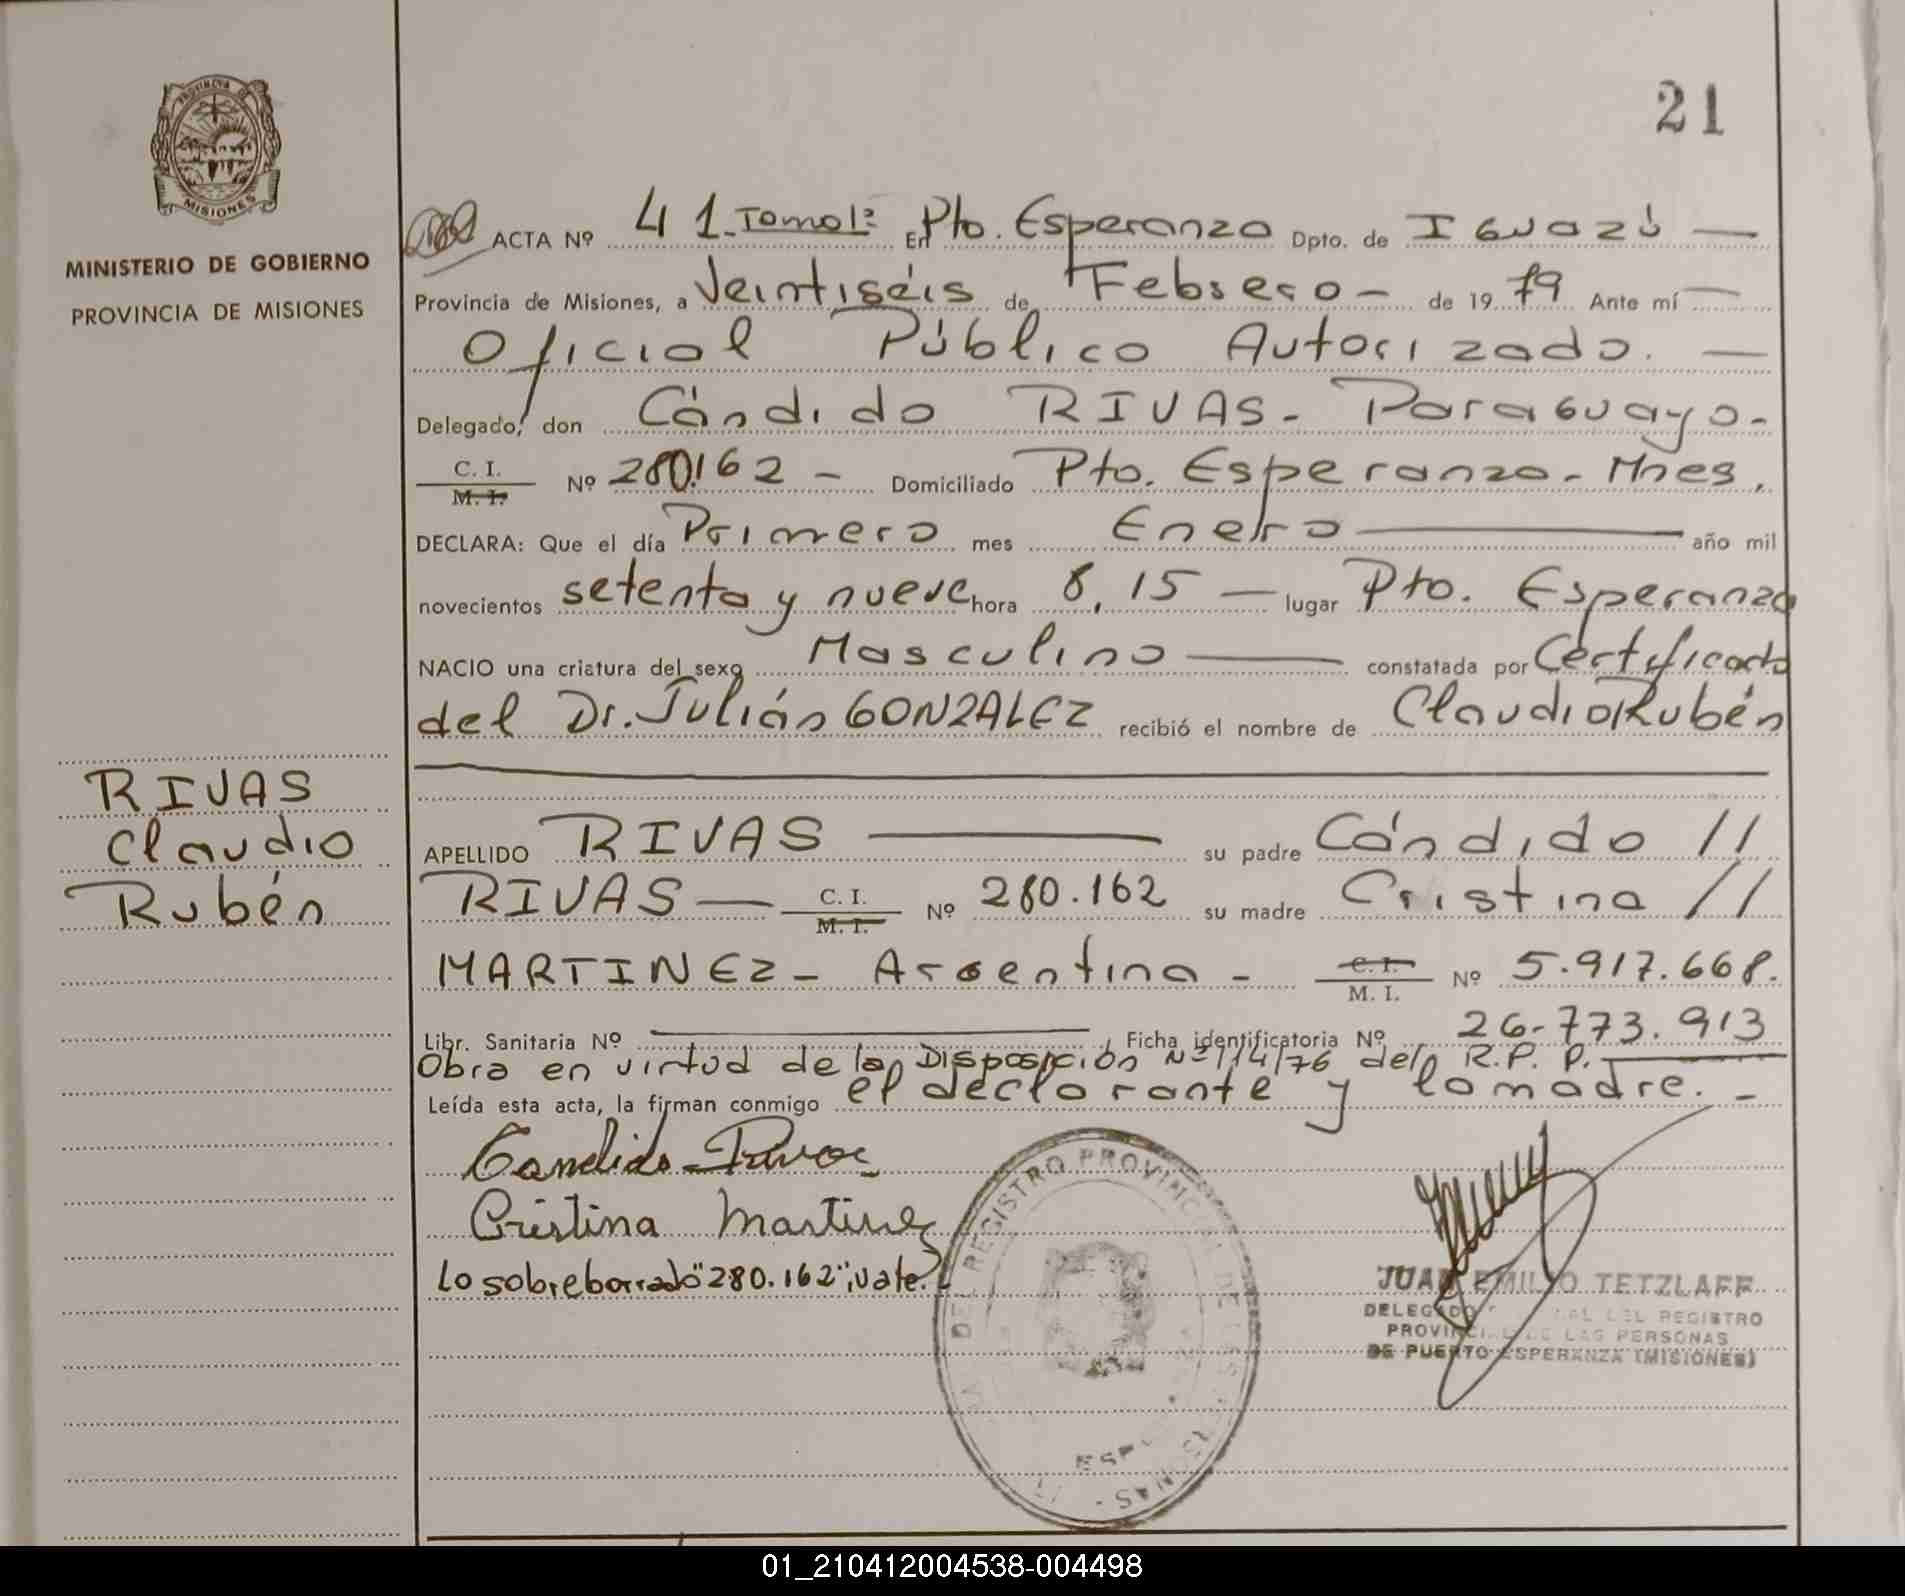 21
PROVINCIA DE
MISIONES
MINISTERIO DE GOBIERNO
PROVINCIA DE MISIONES
ACTA Nº 41-Tomo1º En Pto. Esperanza Dpto. de IGuazú —
Provincia de Misiones, a Veintiséis de Febrero - de 1979 Ante mí —
Oficial Público Autorizado. —
Delegado, don Cándido RIVAS - ParaGuayo -
C. I. Nº 280.162 - Domiciliado Pto. Esperanza - Mnes.
M. I.
DECLARA: Que el día Primero mes Enero — año mil
novecientos setenta y nueve hora 8,15 — lugar Pto. Esperanza
NACIO una criatura del sexo Masculino — constatada por Certificado
del Dr. Julián GONZALEZ recibió el nombre de Claudio Rubén
RIVAS
Claudio
Rubén
APELLIDO RIVAS — su padre Cándido //
RIVAS — C. I. Nº 280.162 su madre Cristina //
M. I.
MARTINEZ - Argentina - C. I. Nº 5.917.668.
M. I.
Libr. Sanitaria Nº — Ficha identificatoria Nº 26-773.913
Obra en virtud de la Disposición Nº 114/76 del R. P. P. —
Leída esta acta, la firman conmigo el declarante y la madre. -
Candido Rivas
Cristina Martinez
Lo sobreborrado "280.162", vale. -
DEL REGISTRO PROVINCIAL DE LAS PERSONAS
JUAN EMILIO TETZLAFF
DELEGADO DEL REGISTRO
PROVINCIAL DE LAS PERSONAS
DE PUERTO ESPERANZA (MISIONES)
01_210412004538-004498